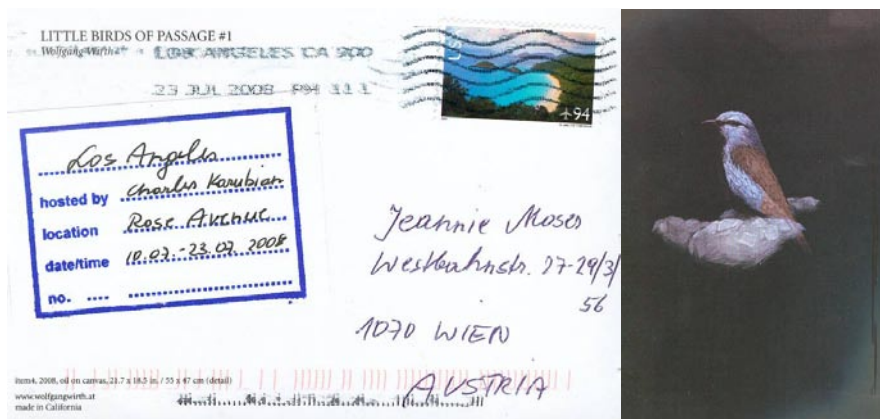 LITTLE BIRDS OF PASSAGE #1
Wolfgang Wirth
LOS ANGELES CA 900
23 JUL 2008 PM 11 1
USA
94
Los Angeles
hosted by Charles Karubian
location Rose Avenue
date/time 10.07.-23.07. 2008
no. ....
Jeannie Moser
Westbahnstr. 27-29/3/
56
1070 WIEN
AUSTRIA
item4, 2008, oil on canvas, 21.7 x 18.5 in. / 55 x 47 cm (detail)
www.wolfgangwirth.at
made in California